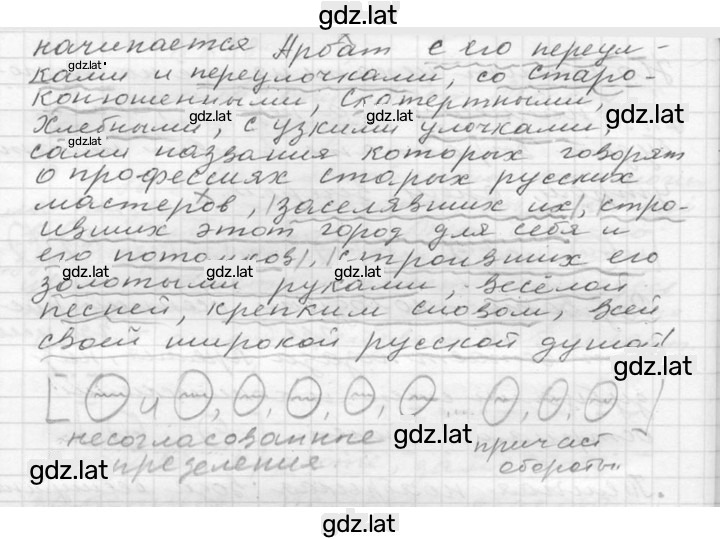 gdz.lat
начинается Арбат с его переул-
ками и переулочками, со Старо-
конюшенными, Скатертными,
Хлебными, с узкими улочками,
сами названия которых говорят
о профессиях старых русских
мастеров, |заселявших их|, |стро-
ивших этот город для себя и
его потомков|, |строивших его
золотыми руками, весёлой
песней, крепким словом, всей
своей широкой русской душой|
[О и О, О, О, О, О, ... О, О, О]
несогласованные причаст
определения обороты.
gdz.lat
gdz.lat
gdz.lat
gdz.lat
gdz.lat
gdz.lat
gdz.lat
gdz.lat
gdz.lat
gdz.lat
gdz.lat
gdz.lat
gdz.lat